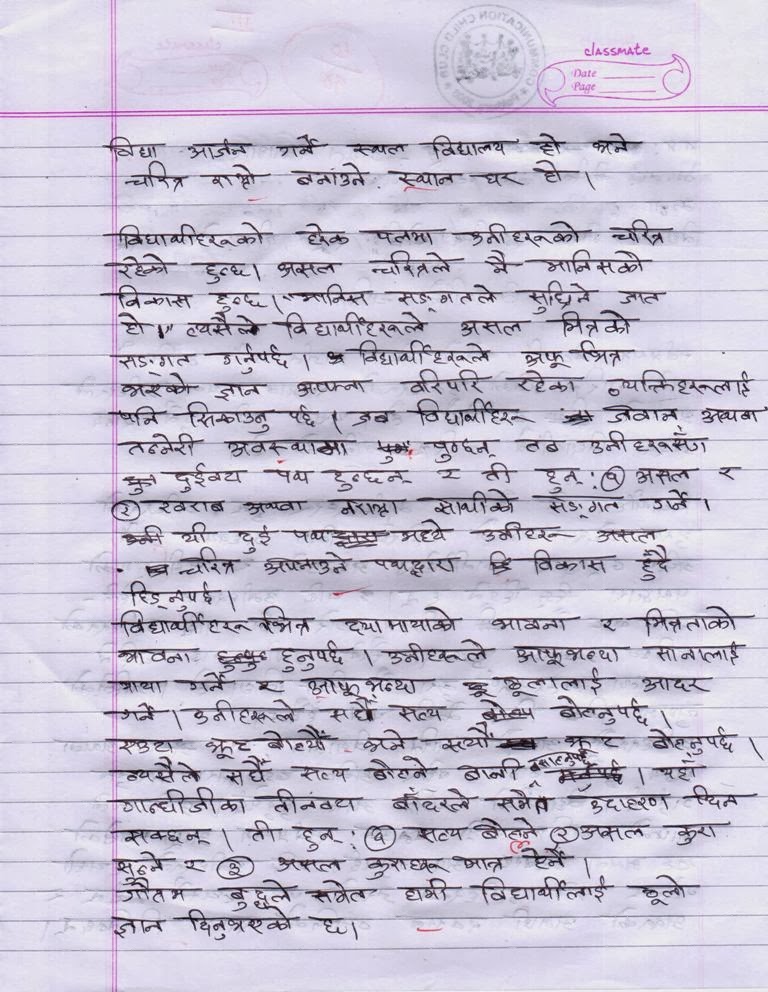 classmate
Date
Page
विद्या आर्जन गर्ने स्थल विद्यालय हो भने
चरित्र राम्रो बनाउने स्थान घर हो ।
विद्यार्थीहरूको हरेक पलमा उनीहरूको चरित्र
रहेको हुन्छ। असल चरित्रले नै मानिसको
विकास हुन्छ। "मानिस सङ्गतले सुध्रिने जात
हो।" त्यसैले विद्यार्थीहरूले असल मित्रको
सङगत गर्नुपर्छ । विद्यार्थीहरूले आफू भित्र
भएको ज्ञान आफ्ना वरिपरि रहेका व्यक्तिहरूलाई
पनि सिकाउनु पर्छ । जब विद्यार्थीहरू जवान अथवा
तन्नेरी अवस्थामा पुग्छन् तब उनीहरूसँग
दुईवटा पथ हुन्छन् र ती हुन् : १ असल र
२ खराब अथवा नराम्रा साथीको सङ्गत गर्ने ।
यी दुई पथ मध्ये उनीहरू असल
चरित्र अपनाउने पथद्वारा विकास हुँदै
हिड्नुपर्छ ।
विद्यार्थीहरू भित्र दयामायाको भावना र मित्रताको
भावना हुनुपर्छ । उनीहरूले आफूभन्दा सानालाई
माया गर्ने र आफूभन्दा ठूलालाई आदर
गर्ने । उनीहरूले सधैं सत्य बोल्नुपर्छ ।
एउटा झूट बोल्यौं भने सयौं झूट बोल्नुपर्छ ।
त्यसैले सधैं सत्य बोल्ने बानी बसाल्नुपर्छ । यहाँ
गान्धीजीका तीनवटा बाँदरले समेत उदाहरण दिन
सक्छन् । ती हुन् : १ सत्य बोल्ने २ असल कुरा
सुन्ने र ३ असल कुराहरू मात्र हेर्ने ।
गौतम बुद्धले समेत हामी विद्यार्थीलाई ठूलो
ज्ञान दिनुभएको छ।